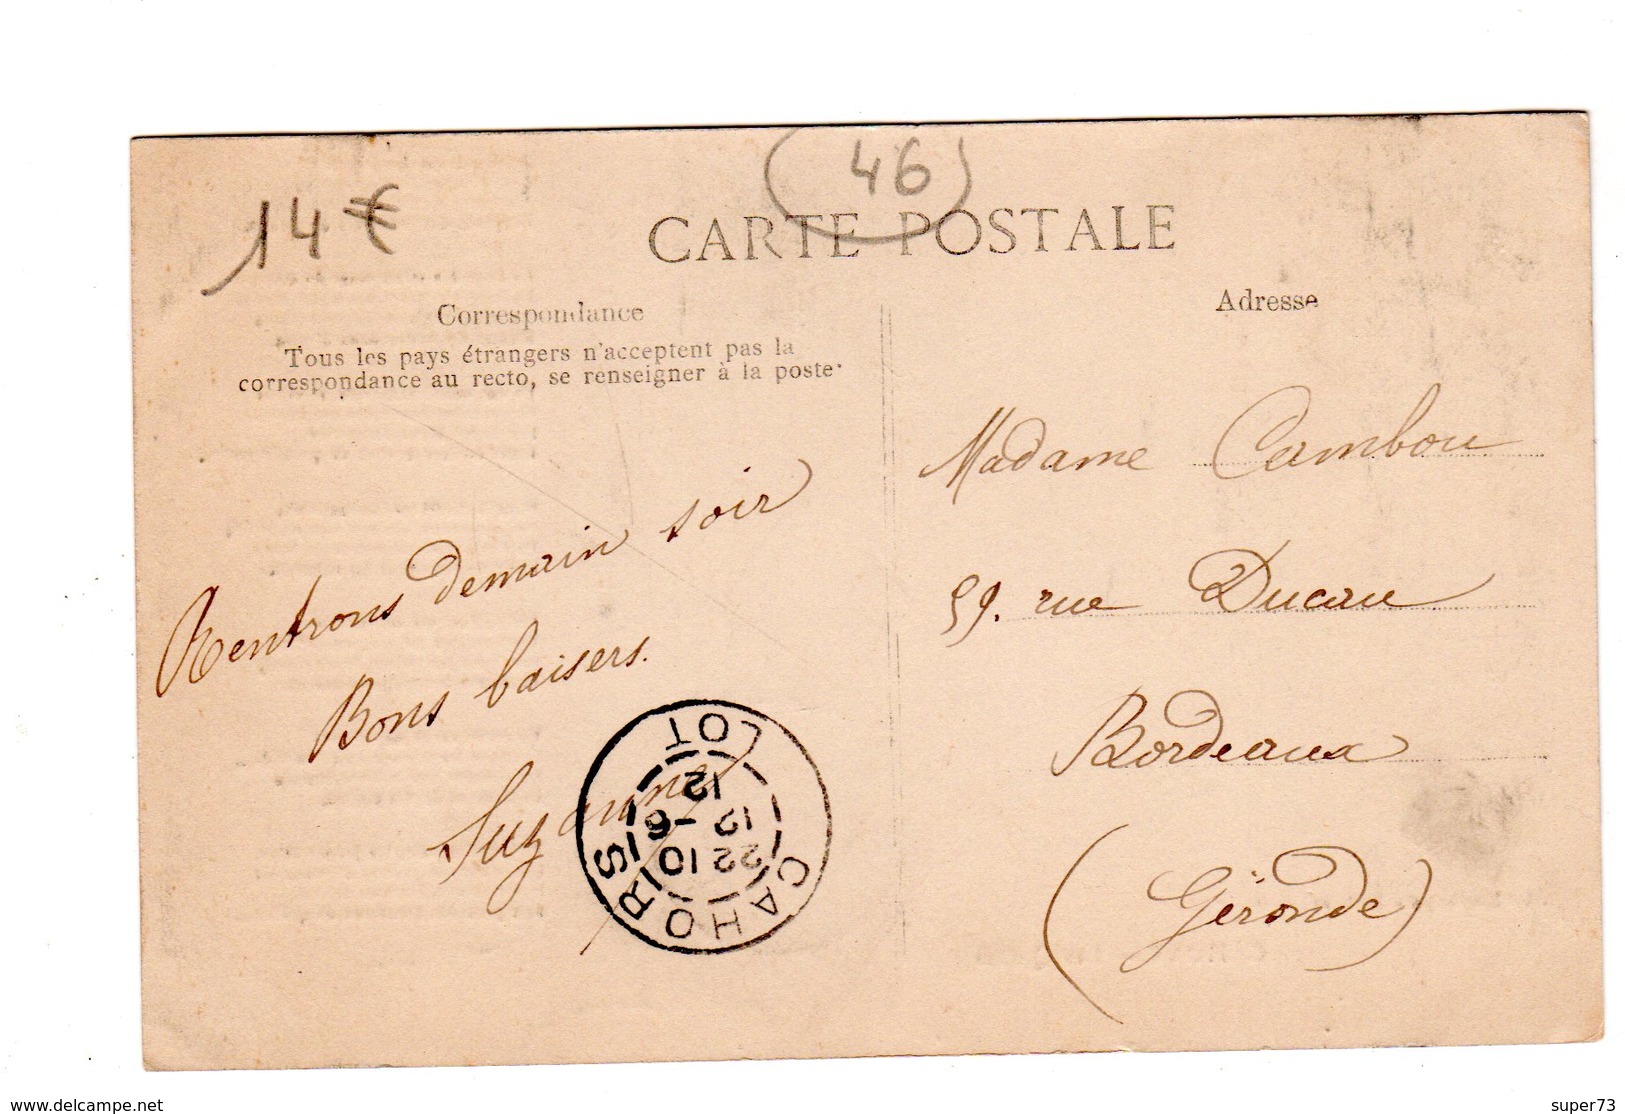 14 €
(46)
CARTE POSTALE
Correspondance
Tous les pays étrangers n'acceptent pas la
correspondance au recto, se renseigner à la poste.
Adresse
Rentrons demain soir
Bons baisers.
Suzanne
Madame Cambou
59. rue Ducau
Bordeaux
(Gironde)
CAHORS
LOT
12
12 -6
22 10
www.delcampe.net
super73